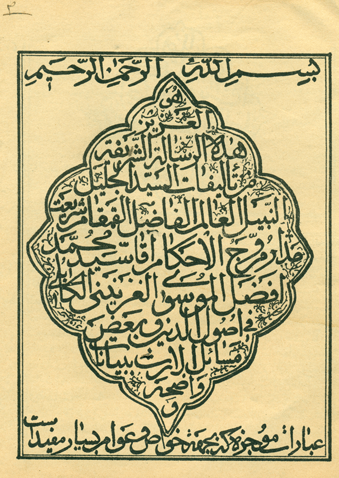 بسم الله الرحمن الرحیم
هو
العزیز
هذه الرسالة الشریفة
من تألیفات السید الجلیل
النبیل العالم الفاضل الفقا شریعت
مروج الاحکام آقا سید محمد
افضل الموسوی الغزنینی الکابلی
فی اصول الدین و بعض
مسائل الارث ببیانات
واضحة
و
عبارات موجزة که بجهة خواص و عوام بسیار مفید است